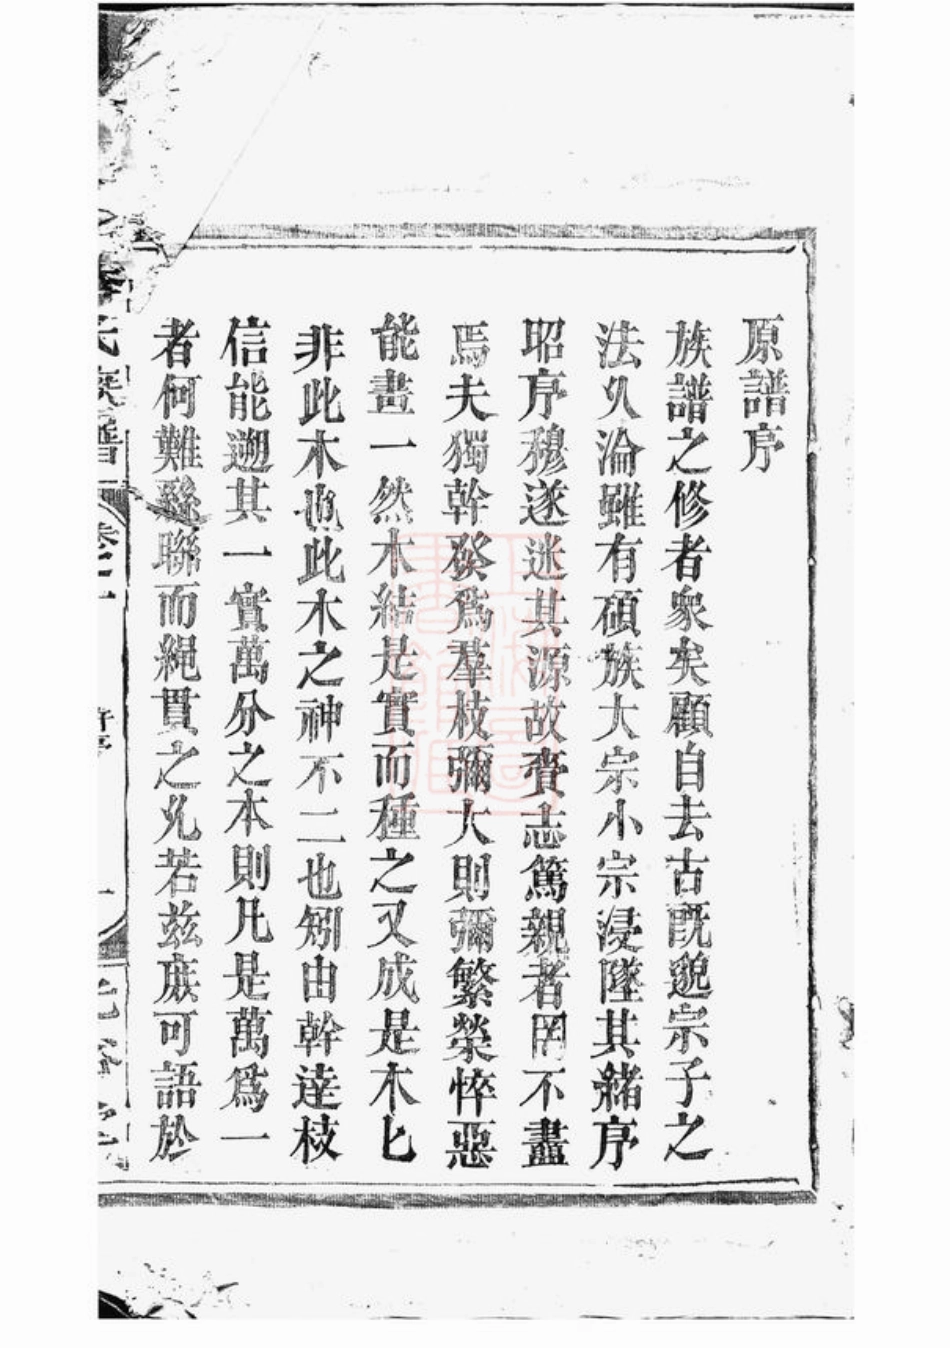 原譜序
族譜之修者衆矣顧自去古既邈宗子之
法久淪雖有碩族大宗小宗浸墜其緒序
昭序穆遂迷其源故賫志篤親者罔不盡
焉夫獨幹發爲羣枝彌大則彌繁榮悴惡
能畫一然木結是實而種之又成是木匕
非此木也此木之神不二也矧由幹逹枝
信能遡其一實萬分之本則凡是萬爲一
者何難聯而繩貫之凡若兹庻可語於
氏族譜 卷之一